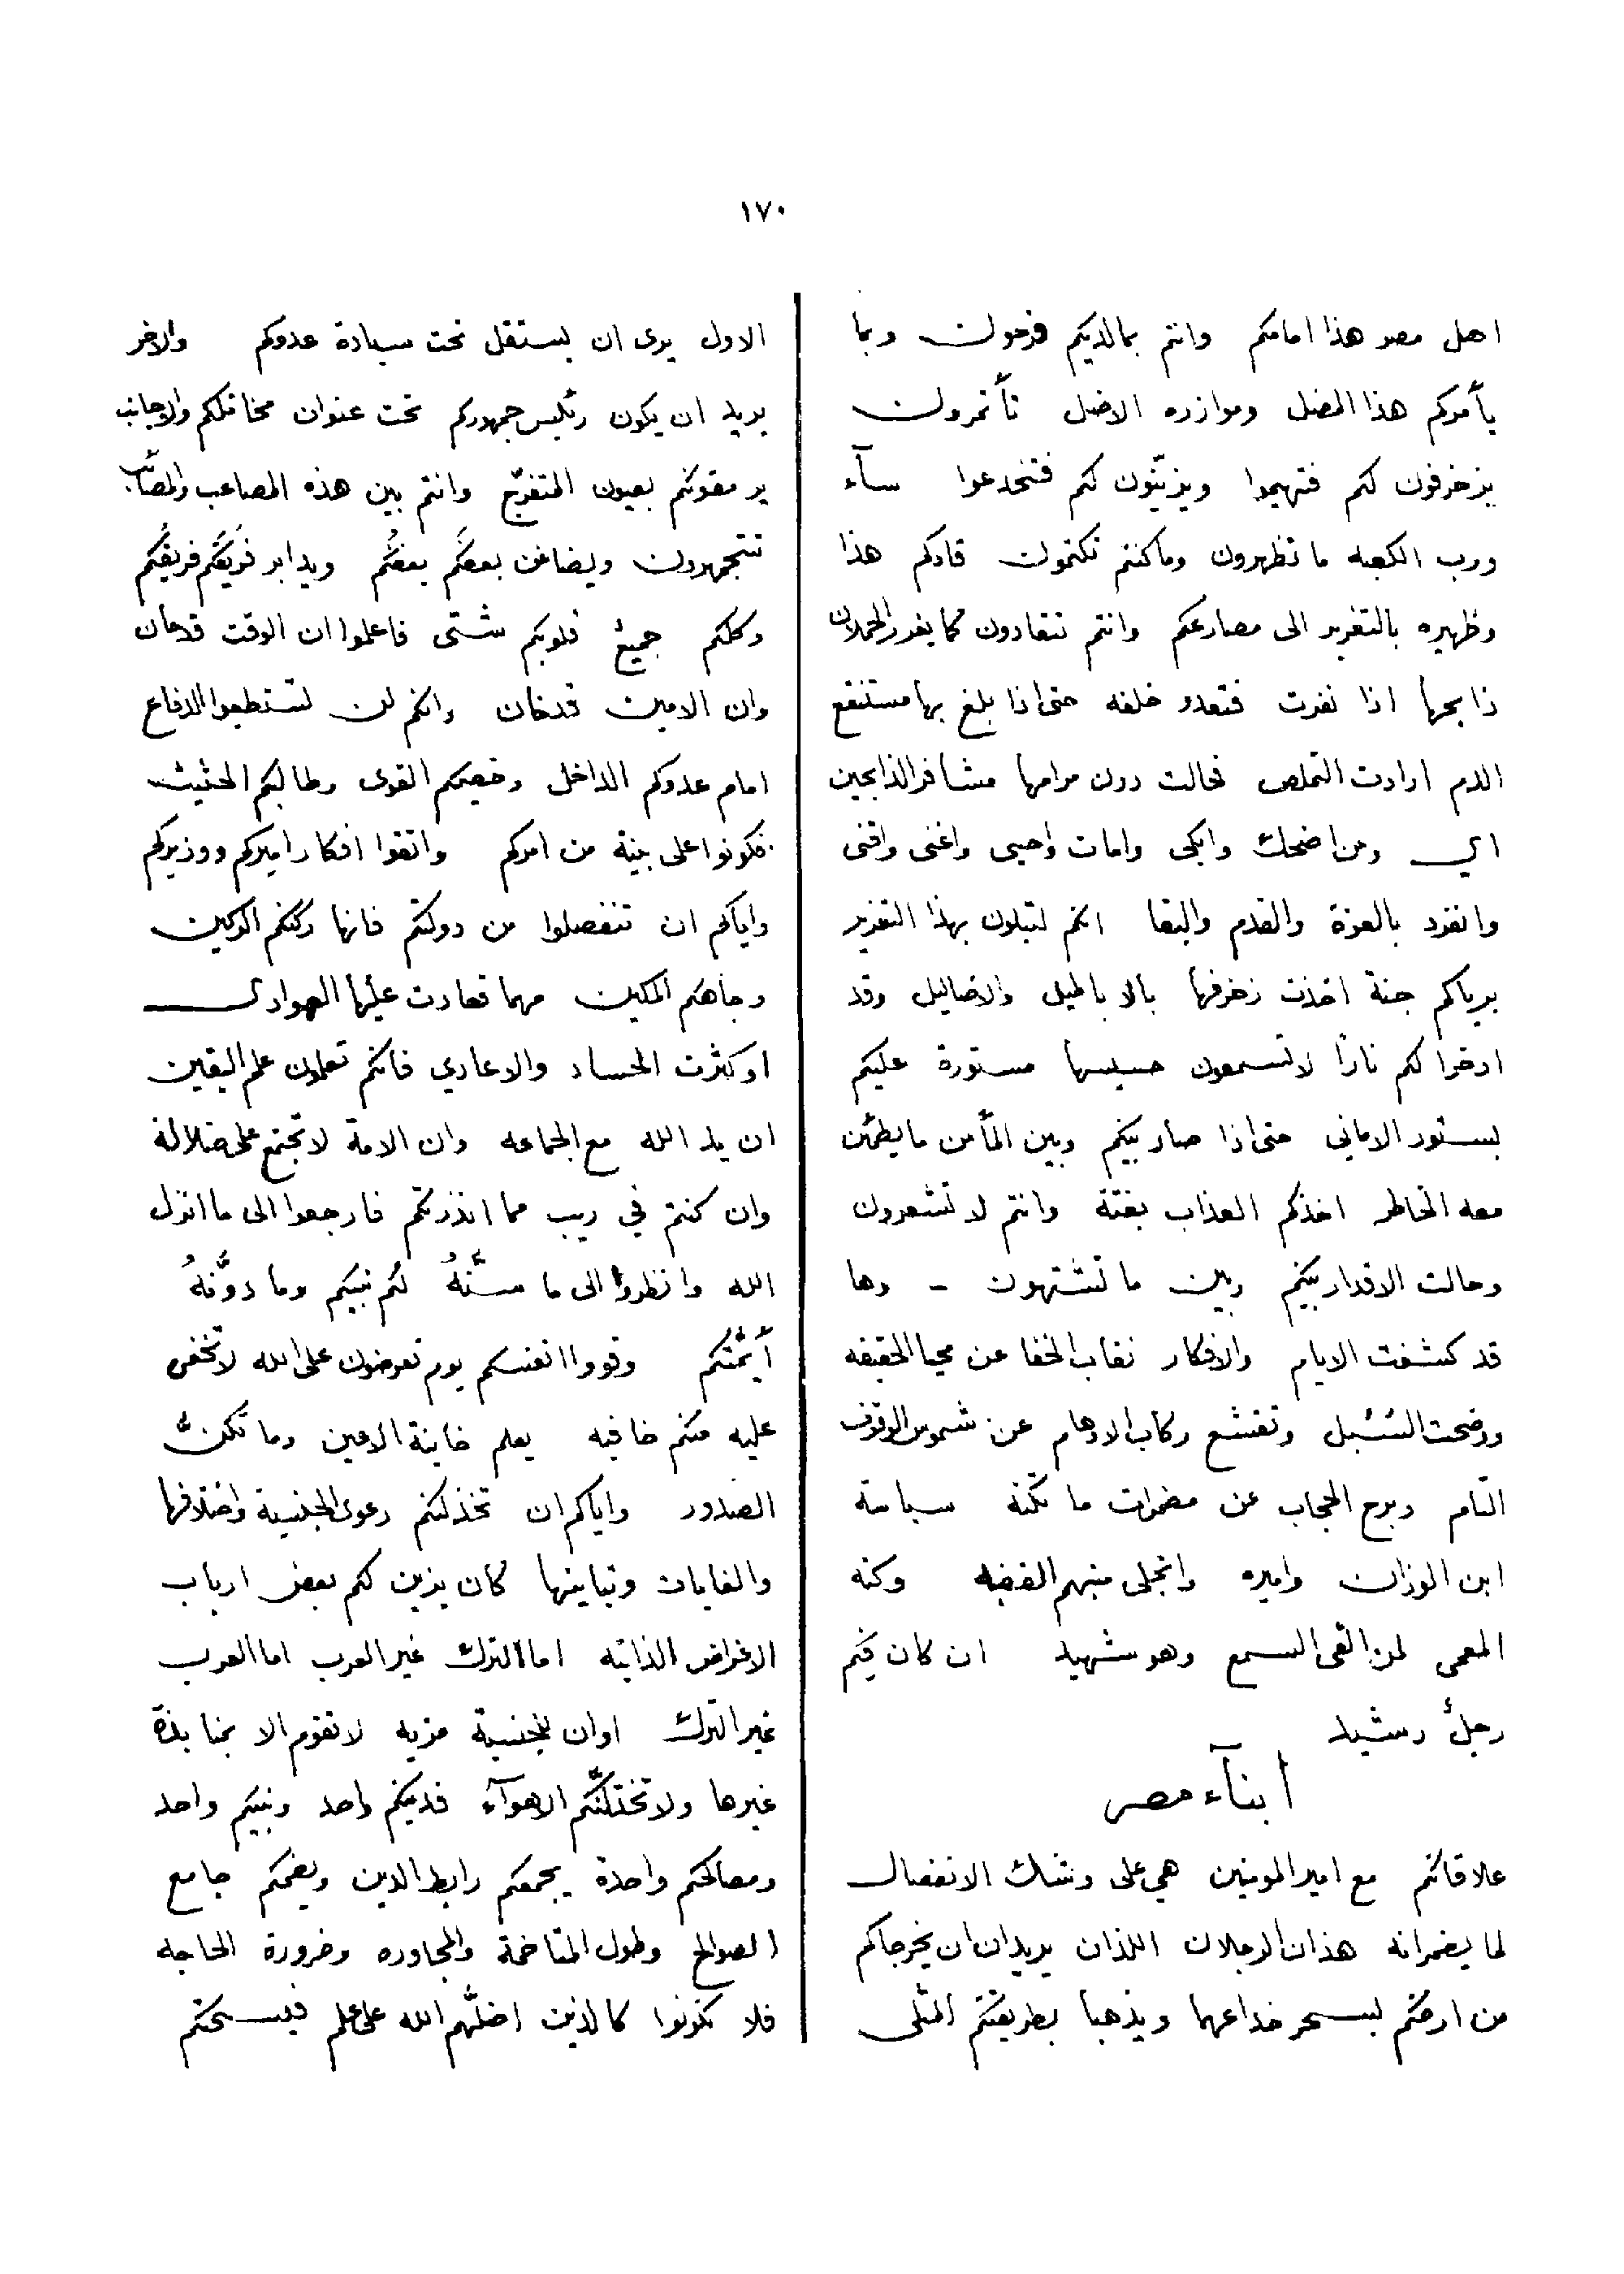 ١٧٠
اهل مصر هذا امامكم وانتم بمالديكم فرحون وبما
يأمركم هذا المضل وموازره الاضل تأتمرون
يزخرفون لكم فتهيموا ويزيّنون لكم فتخدعوا سآء
ورب الكعبه ما تظهرون وماكنتم تكتمون قادكم هذا
وظهيره بالتغرير الى مصارعكم وانتم تنقادون كما يغرر الحملان
ذابحها اذا نفرت فتعدو خلفه حتى اذا بلغ بها مستنقع
الدم ارادت التملص فحالت دون مرامها مشافر الذابحين
اي ومن اضحك وابكى وامات واحيى واغنى واقنى
وانفرد بالعزة والقدم والبقا انكم لتبلون بهذا التغرير
يرياكم جنة اخذت زخرفها بالاباطيل والاضاليل وقد
ادخرا لكم نارًا لا تسمعون حسيسها مستورة عليكم
بستور الاماني حتى اذا صار بينكم وبين المأمن ما يطمئن
معه الخاطر اخذكم العذاب بغتة وانتم لا تشعرون
وحالت الاقدار بينكم وبين ما تشتهون - وها
قد كشفت الايام والافكار نقاب الخفا عن محيا الحقيقه
ووضحت السُبل وتقشع ركاب الاوهام عن شموس الوقوف
التام وبرح الحجاب عن مضمرات ما تكنه سياسة
ابن الوزان واميره وانجلى مبهم القضيه وكنه
المعمى لمن القى السمع وهو شهيد ان كان فيكم
رجلٌ رشيد
ابنآء مصر
علاقاتكم مع امير المومنين هي على وشك الانفصال
لما يضمرانه هذان الرجلان اللذان يريدان ان يخرجاكم
من ارضكم بسحر خداعهما ويذهبا بطريقتكم المثلى
الاول يرى ان يستقل تحت سيادة عدوكم والاخر
يريد ان يكون رئيس جمهوركم تحت عنوان مخاتلكم والاجانب
يرمقونكم بعيون المتفرّج وانتم بين هذه المصاعب والمصائب
تتجمهرون ويضاغن بعضكم بعضكم ويدابر فريقكم فريقكم
وكلكم جميعٌ قلوبكم شتى فاعلموا ان الوقت قدحان
وان الامين قدخان وانكم لن تستطيعوا الدفاع
امام عدوكم الداخل وخصيمكم القوى وطالبكم الحثيث
فكونوا على بينة من امركم واتقوا افكار اميركم ووزيركم
واياكم ان تنفصلوا من دولتكم فانها ركنكم الركين
وجاهكم المكين مهما تعادت عليها العوادى
او كثرت الحساد والاعادي فانكم تعلمون علم اليقين
ان يد الله مع الجماعه وان الامة لا تجتمع على ضلالة
وان كنتم في ريب مما انذرتكم فارجعوا الى ما انزل
الله وانظروا الى ما سنَّهُ لكم نبيكم وما دوَّنهُ
أيمَّتُكم وقووا انفسكم يوم تعرضون على الله لا تخفى
عليه منكم خافيه يعلم خاينة الاعين وما تكنُّ
الصدور واياكم ان تخذلنكم دعوى الجنسية واختلافها
والغايات وتباينها كان يزين لكم بعض ارباب
الاغراض الذاتيه اما الترك غير العرب اما العرب
غير الترك او ان للجنسية مزيه لا تقوم الا بمنابذة
غيرها ولا تختلنَّكم الاهوآء فدينكم واحد ونبيكم واحد
ومصالحكم واحدة يجمعكم رابط الدين ويضمكم جامع
الصوالح وطول المتاخمة والمجاوره وضرورة الحاجه
فلا تكونوا كالذين اضلَّهم الله على علم فيسحتكم